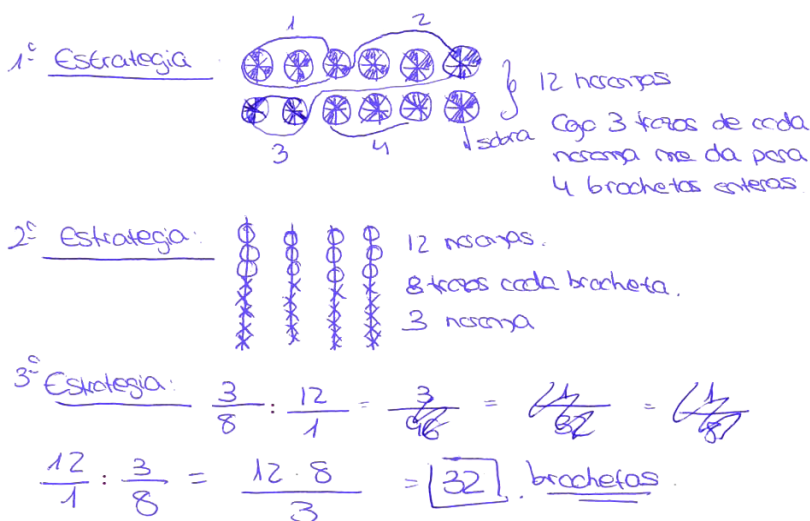 1ª Estrategia
1 2
3 4
↓ sobra
12 naranjas
Cojo 3 trozos de cada
naranja me da para
4 brochetas enteras
2ª Estrategia:
12 naranjas.
8 trozos cada brocheta.
3 naranja
3ª Estrategia:
3/8 : 12/1 = 3/96 = 1/32 =
12/1 : 3/8 = 12 · 8/3 = 32 . brochetas.